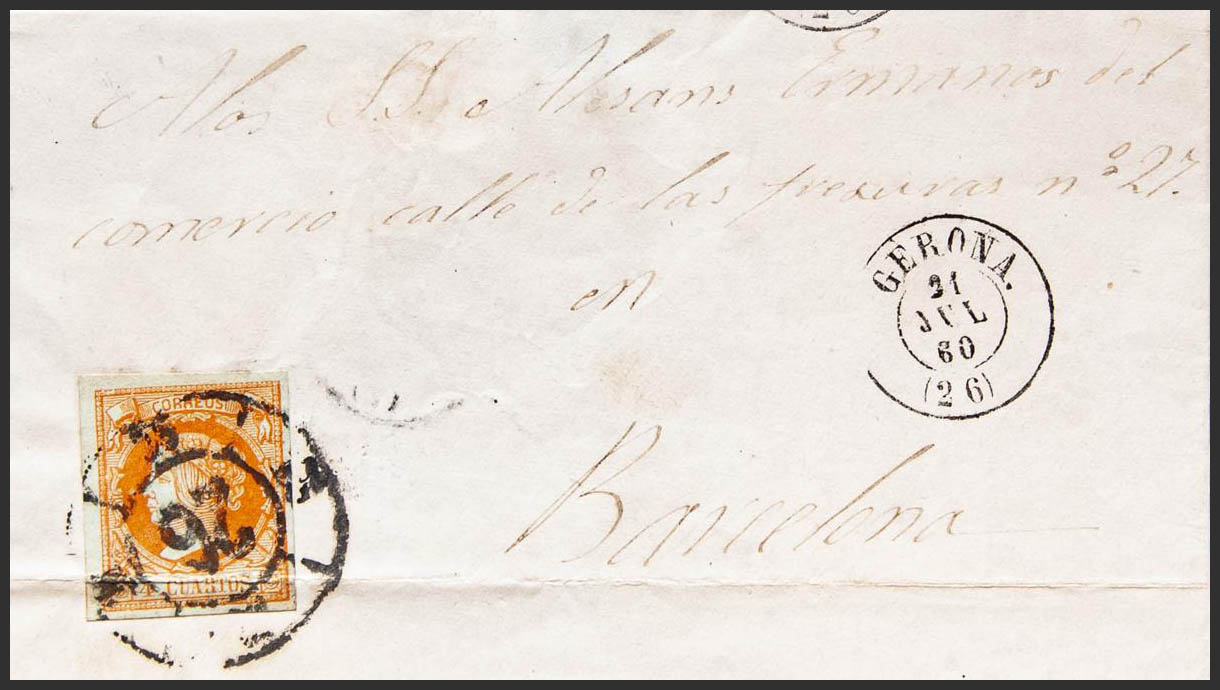 A los SS. Ermanos del
comercio calle de las fresuras nº 27.
en
GERONA.
21
JUL
60
(26)
CORREOS
4 CUARTOS
26
Barcelona